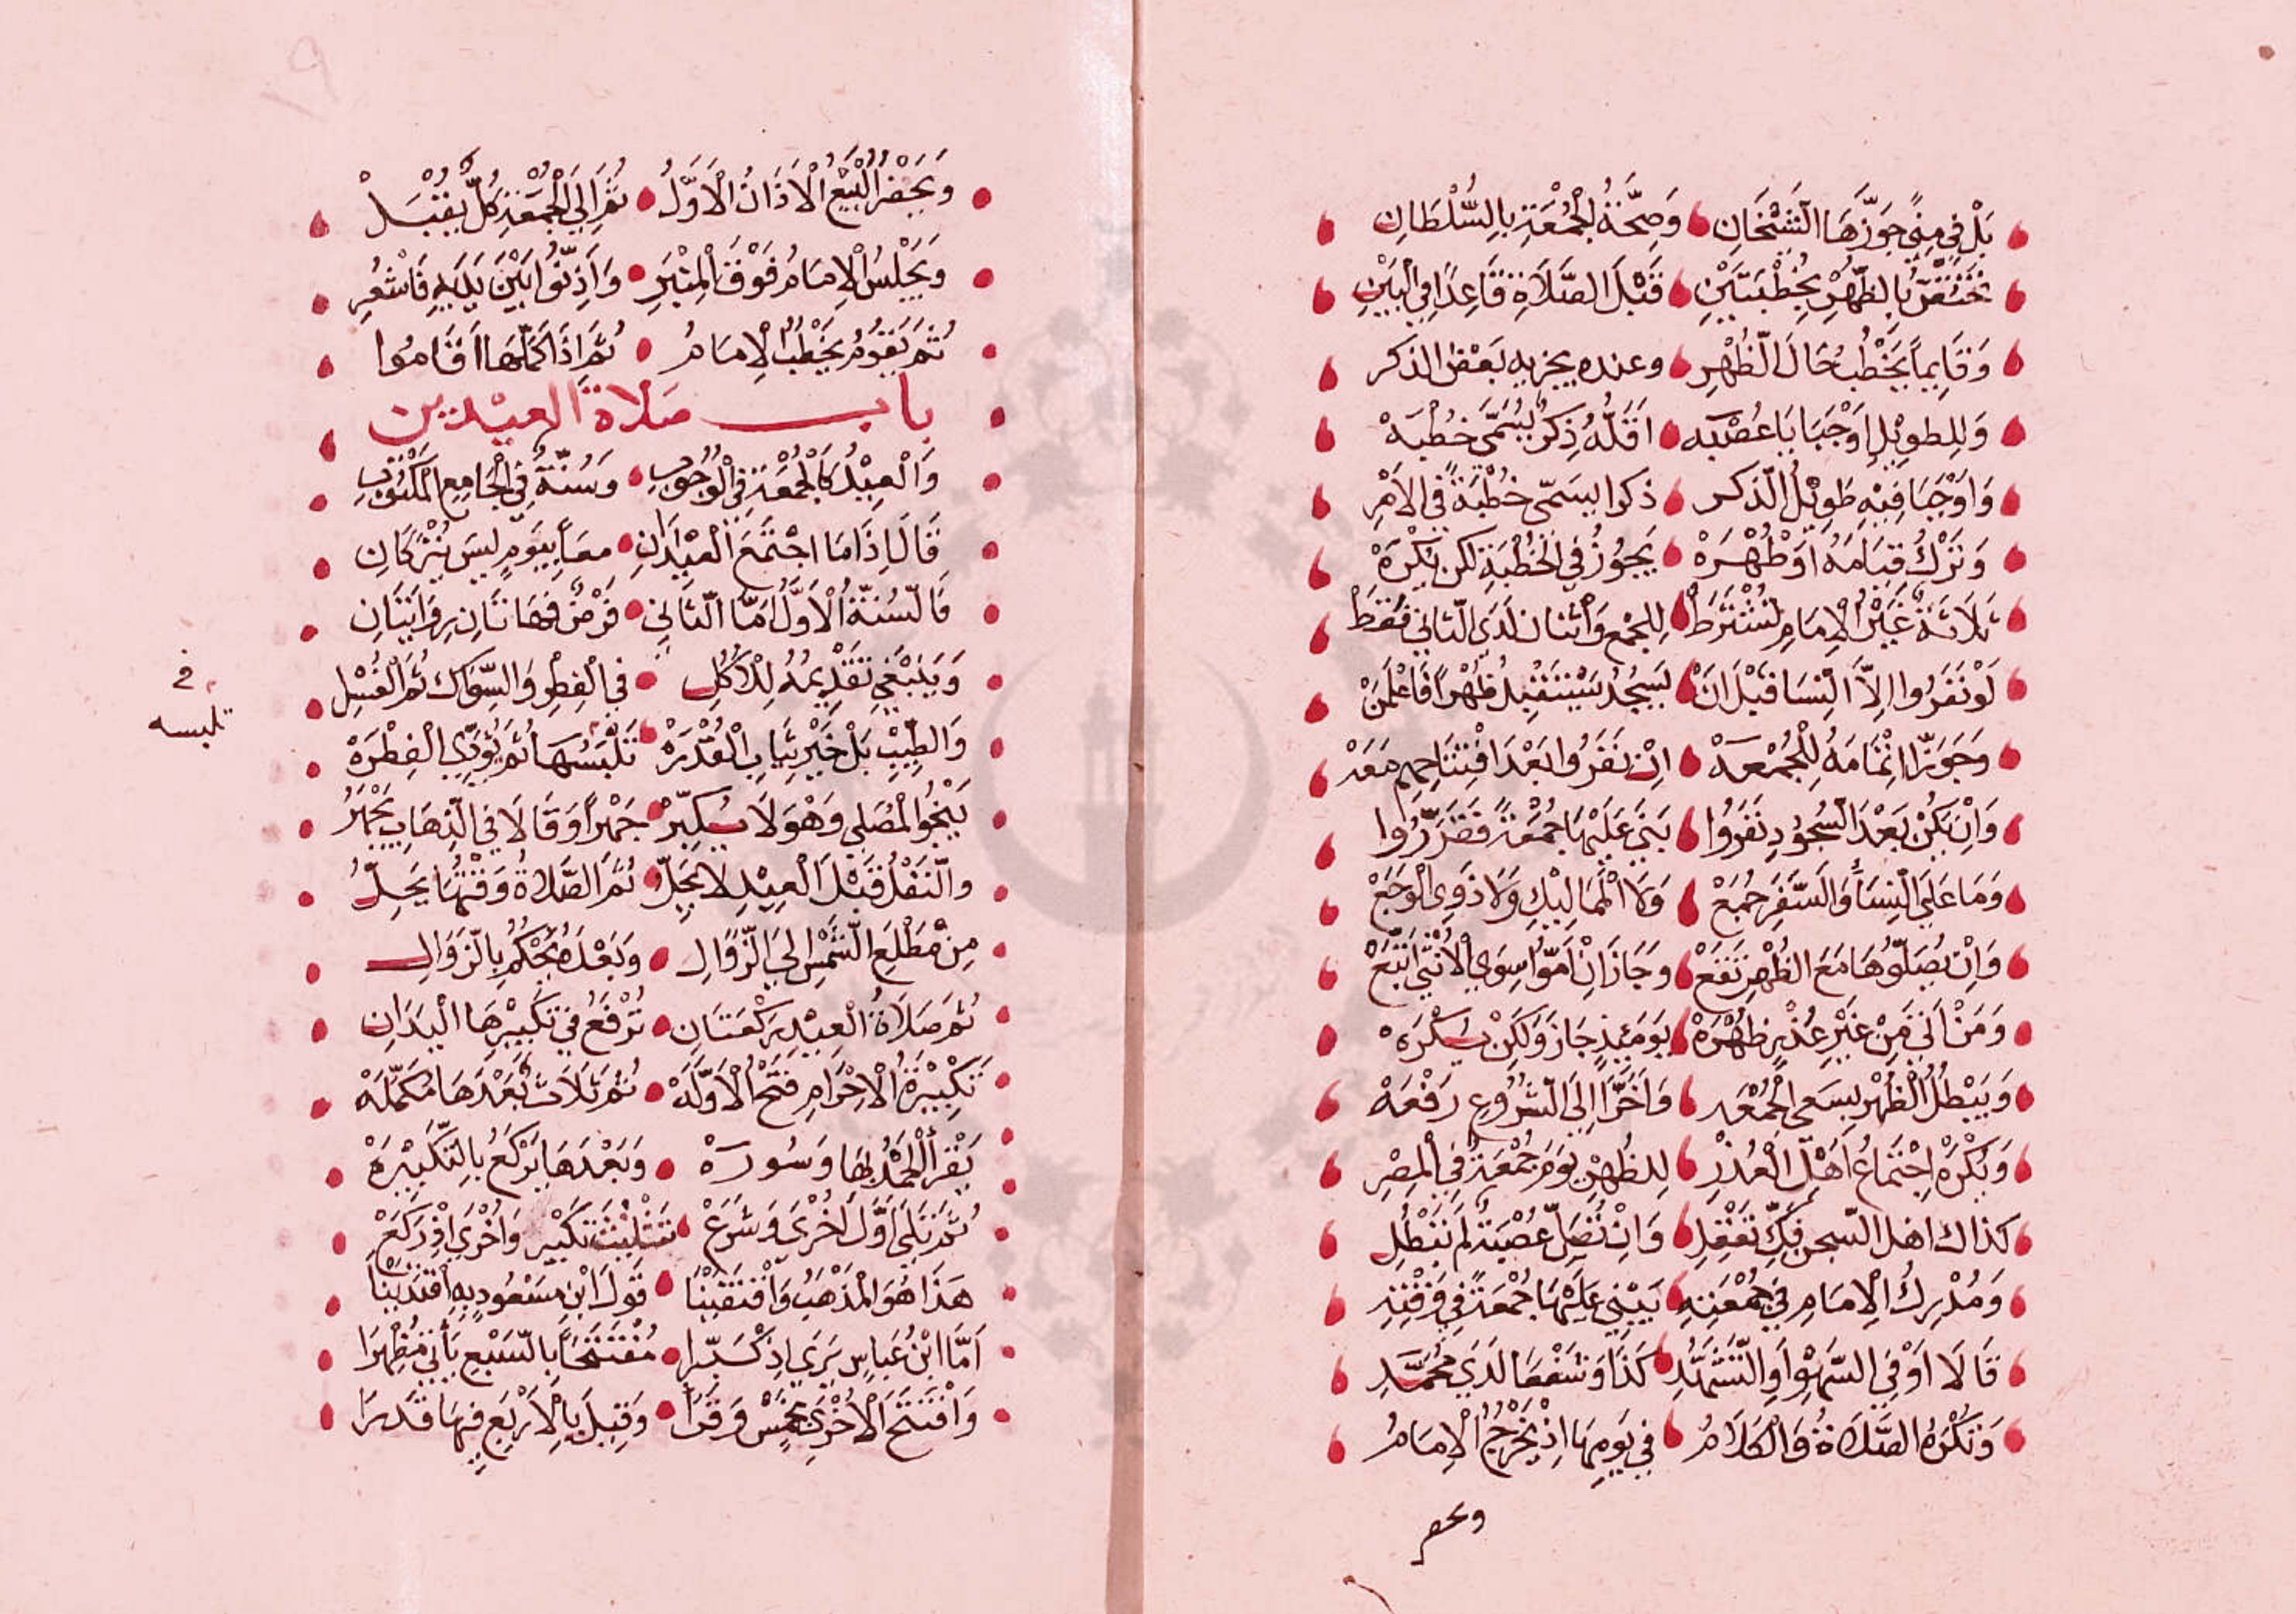 بَلْ فِي مِنًى جَوَّزَهَا الشَّيْخَانِ وَصِحَّةُ الْجُمُعَةِ بِالسُّلْطَانِ
تَخْتَصُّ بِالظُّهْرِ بِخُطْبَتَيْنِ قَبْلَ الصَّلَاةِ قَاعِدًا فِي الْبَيْنِ
وَقَايِمًا يَخْطُبُ حَالَ الطُّهْرِ وعنده يجزيه بَعْضُ الذكر
وَلِلطويْلِ اوْجَبَا يَا عُصْبَه اَقَلُّهُ ذِكْرٌ يُسَمَّى خُطْبَهْ
وَاوْجَبَا فِيْهِ طَوِيْلَ الذّكر ذكرا يسَمّى خُطْبَةً فِي الاَمْرِ
وَتَرْكُ قِيَامَهُ اَوْ طُهْرَهْ يَجُوْزُ فِي الْخُطْبَةِ لكن يُكْرَهْ
ثَلَاثَةٌ غَيْرُ الْاِمَامِ تُشْتَرَطْ لِلجَمْعِ وَاثْنَان لَدَي الثّانِي فَقَطْ
لَوْ نَفَرُوا اِلَّا النِّسَا قَبْلَ اَنْ يَسْجُدْ يَسْتَقْبِلُ ظُهْرًا فَاعْلَمَنْ
وَجَوَّزَا اِتْمَامَهُ لِلْجُمْعَهْ اِنْ نَفَرُوا بَعْدَ افْتِتَاحِهِم مَعَهْ
وَاِنْ يَكُنْ بَعْدَ السُّجُوْدِ نَفَرُوا بَنَى عَلَيْهَا جُمْعَةً فَقَرَّرُوا
وَمَا عَلَى النِّسَا وَالسَّفَرِ جُمَعْ وَلَا الْمَمَالِيْكِ وَلَا ذَوِي الْوَجَعْ
وَاِنْ يُصَلُّوهَا مَعَ الظُّهْرِ تَقَعْ وَجَازَ اِنْ اَمُّوا سِوَي الْاُنْثَى اتُّبَعْ
وَمَنْ اَتَى مِنْ غَيْرِ عُذْرٍ ظُهْرَهْ يَوْمَئِذٍ جَازَ وَلَكِنْ يُكْرَهْ
وَيَبْطُلُ الظُّهْرُ بِسَعي الْجُمْعَه وَاَخَّرَا اِلَى الشُّرُوْعِ رَفْعَهْ
وَيُكْرَهُ اجْتِمَاعُ اَهْلِ الْعُذْرِ لِلظُّهْرِ يَوْمَ جُمْعَةٍ فِي الْمِصْرِ
كذاك اهل السّجن وَاِنْ تُصَلِّ عُصْبَةٌ لَمْ تَبْطُلِ
وَمُدْرِكُ الْاِمَامِ فِي جُمْعَتِهِ يَبْنِي عَلَيْهَا جُمْعَةً فِي وَقْتِهِ
قَالَا اَوْ فِي السَّهْوِ اَوِ التَّشَهُّدِ كَذَا وَشَفْعَهَا لَدَي مُحَمَّدِ
وَتُكْرَهُ الصَّلَاةُ وَالْكَلَامُ فِي يَوْمِهَا اِذْ يَخْرُجُ الْاِمَامُ
ويحفر
وَيَحْفِزُ الْبَيْعَ الْاَذَانُ الْاَوَّلُ ثُمَّ اِلَى الْجُمْعَةِ كُلٌّ يُقْبِلْ
وَيَجْلِسُ الْاِمَامُ فَوْقَ الْمِنْبَرِ وَاَذَّنُوا بَيْنَ يَدَيْهِ فَاشْعُرِ
ثُمَّ يَقُوْمُ يَخْطُبُ الْاِمَامُ ثُمَّ اِذَا كَمَّلَهَا اَقَامُوا
باب صَلاة العيْدَين
وَالْعِيْدُ كَالْجُمْعَةِ فِي الْوُجُوْبِ وَسُنَّةٌ فِي الْجَامِعِ الْمَكْتُوْبِ
قَالَ اِذَا مَا اجْتَمَعَ الْعِيْدَانِ معًا بِيَوْمٍ لَيسَ يُتْرَكَانِ
فَالسُّنَّةُ الْاَوَّلُ اَمَّا الثَّانِي فَرْضٌ فَهَاتَانِ رِوَايَتَانِ
وَيَنْبَغِي تَقْدِيْمُهُ لِلْاَكْلِ فِي الْفِطْرِ وَالسِّوَاكَ ثُمَّ الْغُسْلِ
وَالطِّيْبِ بَلْ خَيْرِ ثِيَابِ الْقُدْرَهْ تَلْبَسُهَا ثُمَّ يُؤَدِّي الْفِطْرَهْ
في
تلبسه
يَنْحُو الْمُصَلَّى وَهْوَ لَا يُكَبِّرْ جَهْرًا وَقَالَا فِي الذِّهَابِ يَجْهَرُ
وَالنَّفْلُ قَبْلَ الْعِيْدِ لا يَحِلُّ ثُمَّ الصَّلَاةُ وَقْتُهَا يَحِلُّ
مِنْ مَطْلَعِ الشَّمْسِ اِلَى الزَّوَالِ وَبَعْدَهُ يُحْكَمُ بِالزَّوَالِ
ثُمَّ صَلَاةُ الْعِيْدِ رَكْعَتَانِ تُرْفَعُ فِي تَكْبِيْرِهَا الْيَدَانِ
تَكْبِيْرَةُ الْاِحْرَامِ فَتْحُ الْاَوَّلَهْ ثُمَّ ثَلَاثٌ بَعْدَهَا مُكَمِّلَهْ
يَقْرَأُ الْحَمْدُ بِهَا وَسُورَهْ وَبَعْدَهَا يَرْكَعُ بِالتَّكْبِيْرَهْ
ثُمَّ تَلَى اَوَّلَ اُخْرَى وَشَرَعْ تَثْلِيْثَ تَكْبِيْرٍ وَاُخْرَي اِذْ رَكَعْ
هَذَا هُوَ الْمَذْهَبُ وَاقْتَفَيْنَا قَولَ ابْنِ مَسْعُوْدٍ بِهِ اقْتَدَيْنَا
اَمَّا ابْنُ عَبَاسٍ يَرَى اِذْ كَبَّرَا مُفْتَتِحًا بِالسَّبْعِ يَأْتِي مُظْهِرَا
وَافْتَتَحَ الْاُخْرَى بِخَمْسٍ وَقَرَا وَقِيْلَ بِالْاَرْبَعِ فِيْهَا قَدَرَا